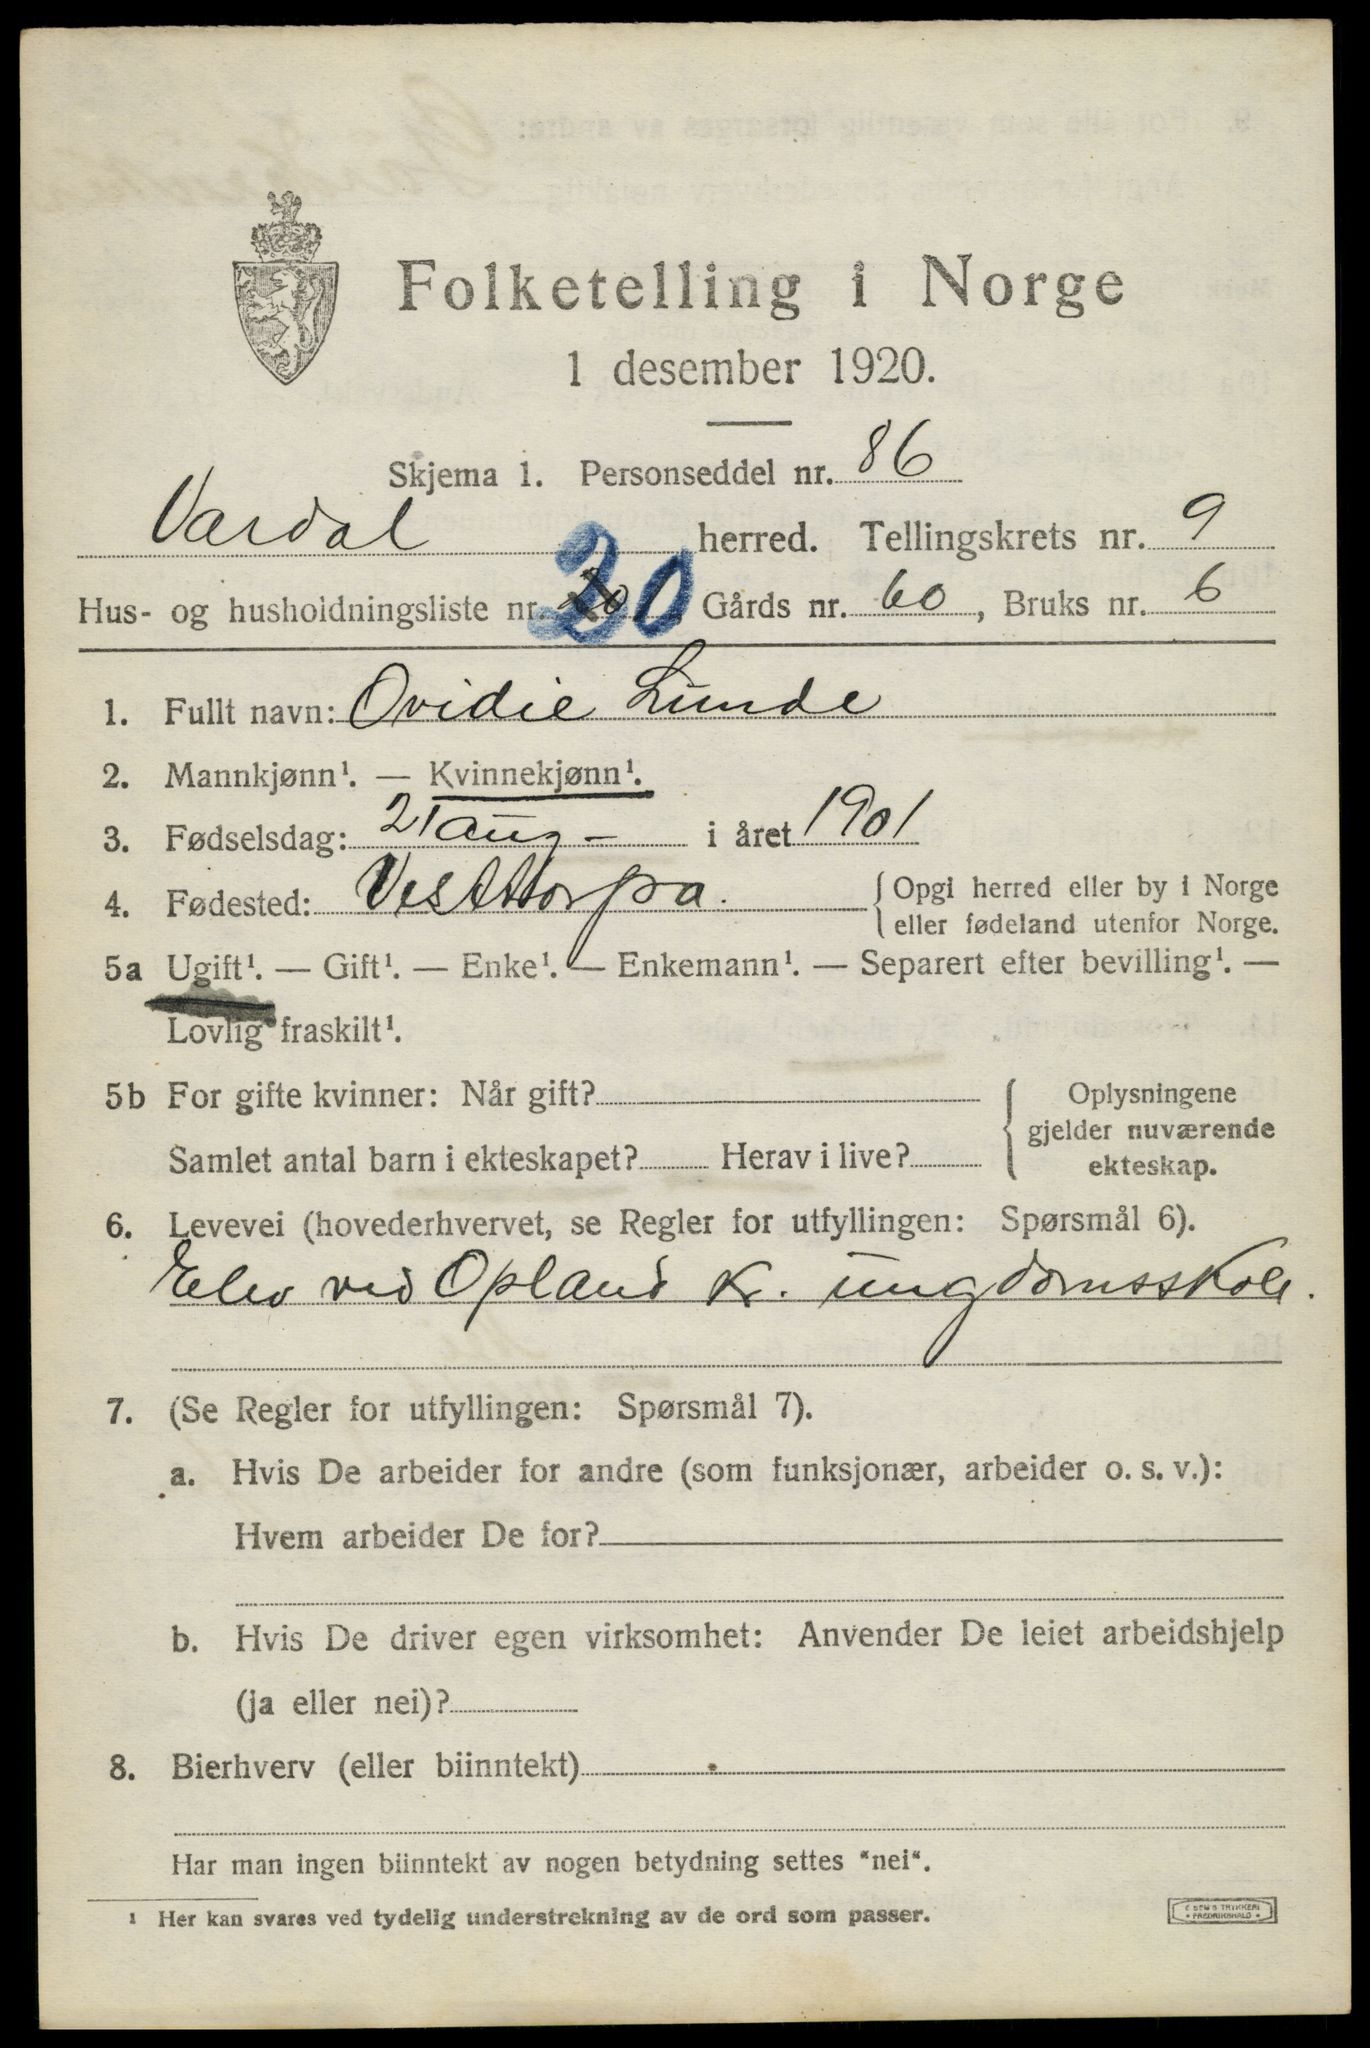 Folketelling i Norge
1 desember 1920.
Skjema 1. Personseddel nr. 86
Vardal herred. Tellingskrets nr. 9
Hus- og husholdningsliste nr. 30, Gårds nr. 60, Bruks nr. 6
1. Fullt navn: Ovidie Lunde
2. Mannkjønn¹. — Kvinnekjønn¹.
3. Fødselsdag: 21 aug – i året 1901
4. Fødested: Vesttorpa. {Opgi herred eller by i Norge
eller fødeland utenfor Norge.
5a Ugift¹. — Gift¹. — Enke¹. — Enkemann¹. — Separert efter bevilling¹. —
Lovlig fraskilt¹.
5b For gifte kvinner: Når gift?
Samlet antal barn i ekteskapet? Herav i live?
{Oplysningene
gjelder nuværende
ekteskap.
6. Levevei (hovederhvervet, se Regler for utfyllingen: Spørsmål 6).
Elev ved Opland K. ungdomsskole.
7. (Se Regler for utfyllingen: Spørsmål 7).
a. Hvis De arbeider for andre (som funksjonær, arbeider o. s. v.):
Hvem arbeider De for?
b. Hvis De driver egen virksomhet: Anvender De leiet arbeidshjelp
(ja eller nei)?
8. Bierhverv (eller biinntekt)
Har man ingen biinntekt av nogen betydning settes "nei".
¹ Her kan svares ved tydelig understrekning av de ord som passer.
TRYKKERI
FREDRIKSHALD